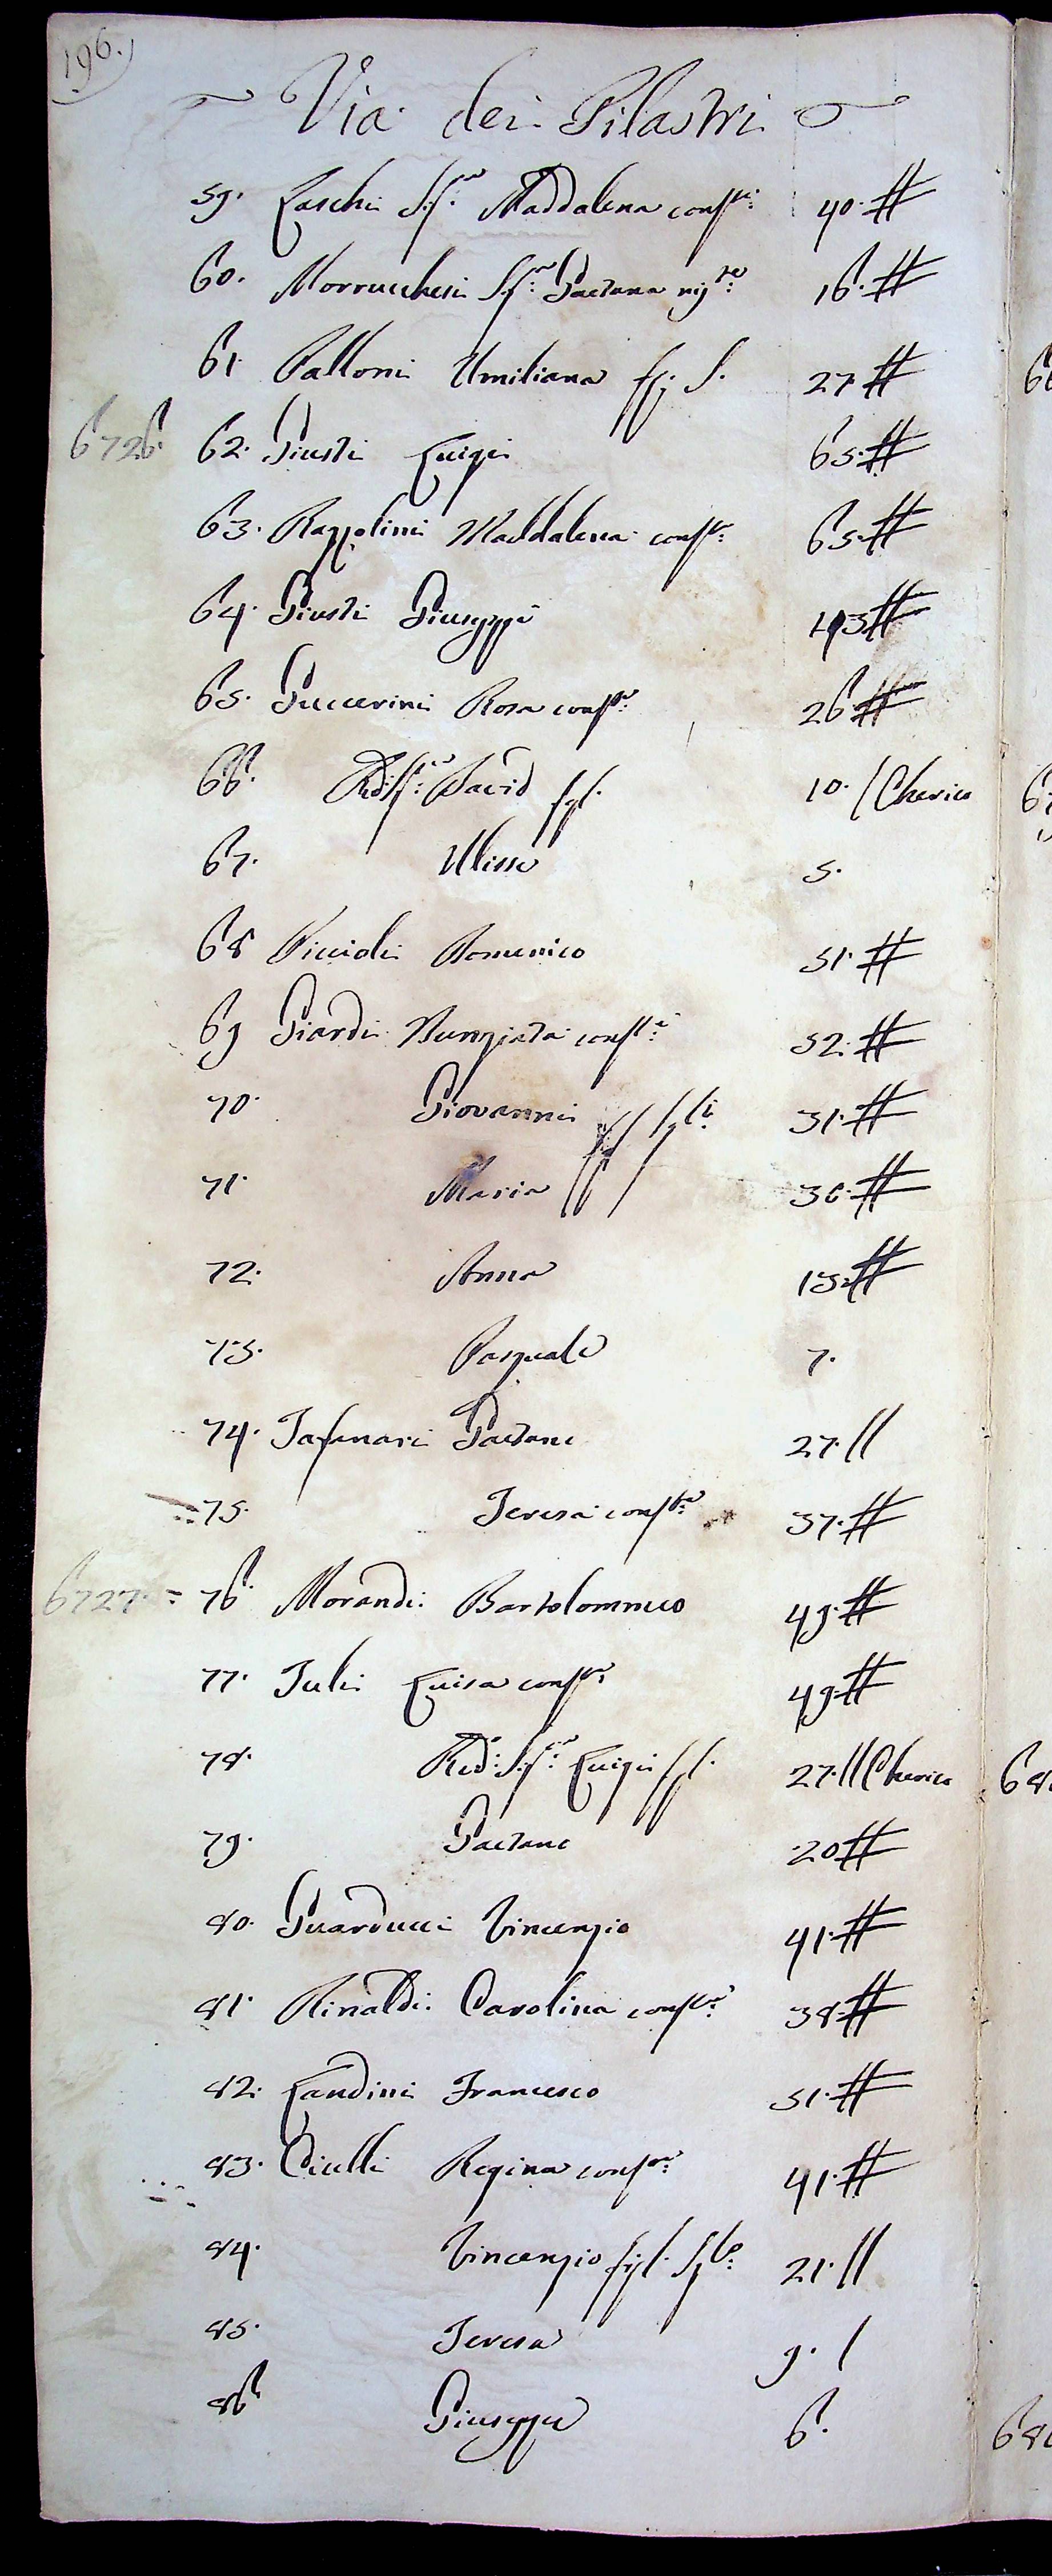 196.
Via dei Pilastri
59. Laschi S.ra Maddalena conste: 40. #
60. Morrucchesi S.ra Gaetana nipte: 16. #
61. Palloni Umiliana S. 27. #
6726. 62. Giusti Luigi 65. #
63. Razzolini Maddalena conste: 65. #
64. Giusti Giuseppe #
65. Guccerini Rosa conste: 26 #
66. David figl. 10. / Cherico
67. Ulisse 5.
68 Piccioli Domenico 51. #
69 Giardi Nunziata conste: 52. #
70. Giovanni figli 31. #
71. Maria 30. #
72. Anna 15. #
73. Pasquale 7.
74. Tafanari Gaetano 27. //
75. Teresa conste: 37. #
6727. = 76. Morandi Bartolommeo 49. #
77. Juli Luisa conste: 49. #
78. Red: S.re Luigi 27. // Cherico
79. Gaetano 20 #
80. Guarducci Vincenzio 41. #
81. Rinaldi Carolina conste: 38. #
82. Landini Francesco 51. #
83. Ciulli Regina conste: 41. #
84. Vincenzio figl. 21. //
85. Teresa 9. /
86 Giuseppe 6.